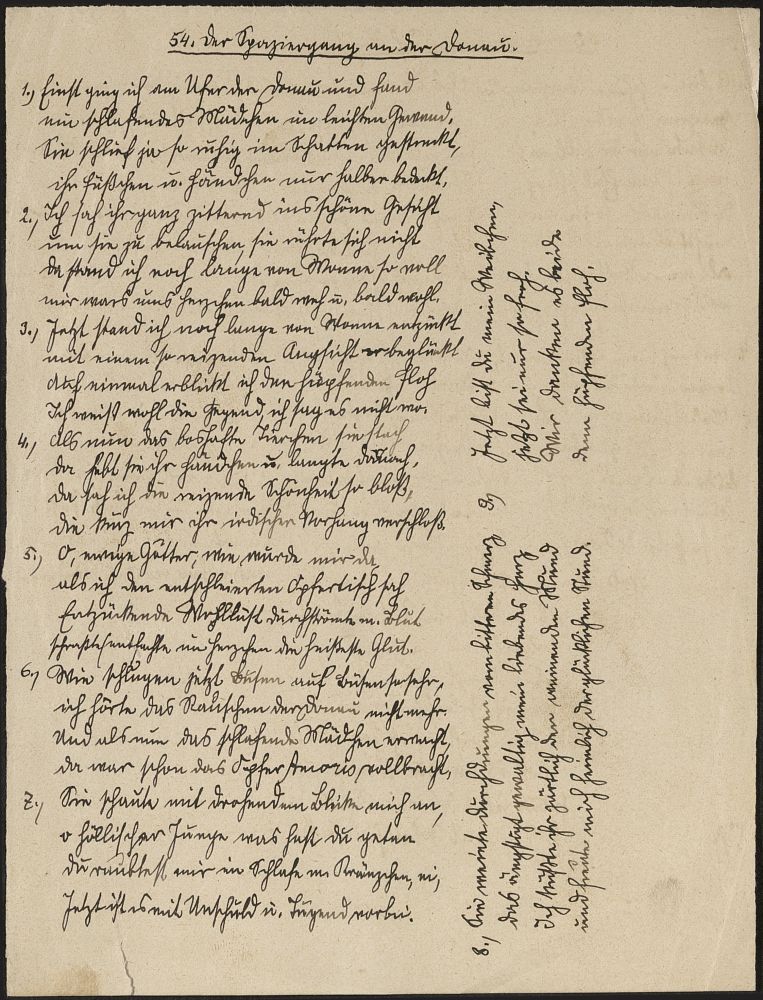 54. Der Spaziergang an der Donau.
1., Einst ging ich am Ufer der Donau und fand
ein schlafendes Mädchen in leichtem Gewand.
Sie schlief ja so ruhig im Schatten gestreckt,
ihr Füßchen u. Händchen nur halber bedeckt.
2., Ich sah ihr ganz zitternd ins schöne Gesicht
um sie zu belauschen, sie rührte sich nicht
da stand ich noch lange von Wonne so voll
mir wars ums Herzchen bald weh u. bald wohl.
3., Jetzt stand ich noch lange von Wonne entzückt
mit einem so reizenden Angsicht beglückt
auf einmal erblickt ich den hüpfenden Floh
Ich weiß wohl die Gegend, ich sag es nicht wo.
4., Als nun das boshafte Tierchen sie stach
da hebt sie ihr Händchen u. langte danach,
da sah ich die reizende Schönheit so bloß,
die kurz mir ihr irdischer Vorhang verschloß.
5., O, ewige Götter, wie wurde mir da,
als ich den entschleierten Opfertisch sah
Entzückende Wohllust durchströmte m. Blut
entfachte im Herzchen die heißeste Glut.
6., Wie schlugen jetzt Busen auf Busen so sehr,
ich hörte das Rauschen der Donau nicht mehr.
Und als nun das schlafende Mädchen erwacht,
da war schon das Opfer Amoris vollbracht,
7., Sie schaute mit drohendem Blicke mich an,
o höllischer Junge was hast du getan
du raubtest mir im Schlafe m. Kränzchen, ei,
Jetzt ist es mit Unschuld u. Tugend vorbei.
8., Sie weinte durchdrungen von bitterm Schmerz
das ängstigt gewaltig mein liebendes Herz
Ich küßte ihr zärtlich den weinenden Mund
und freute mich heimlich der glücklichen Stund.
9., Jetzt bist du mein Weibchen,
jetzt sei nur so froh.
Wir danken es beide
dem hüpfenden Floh.